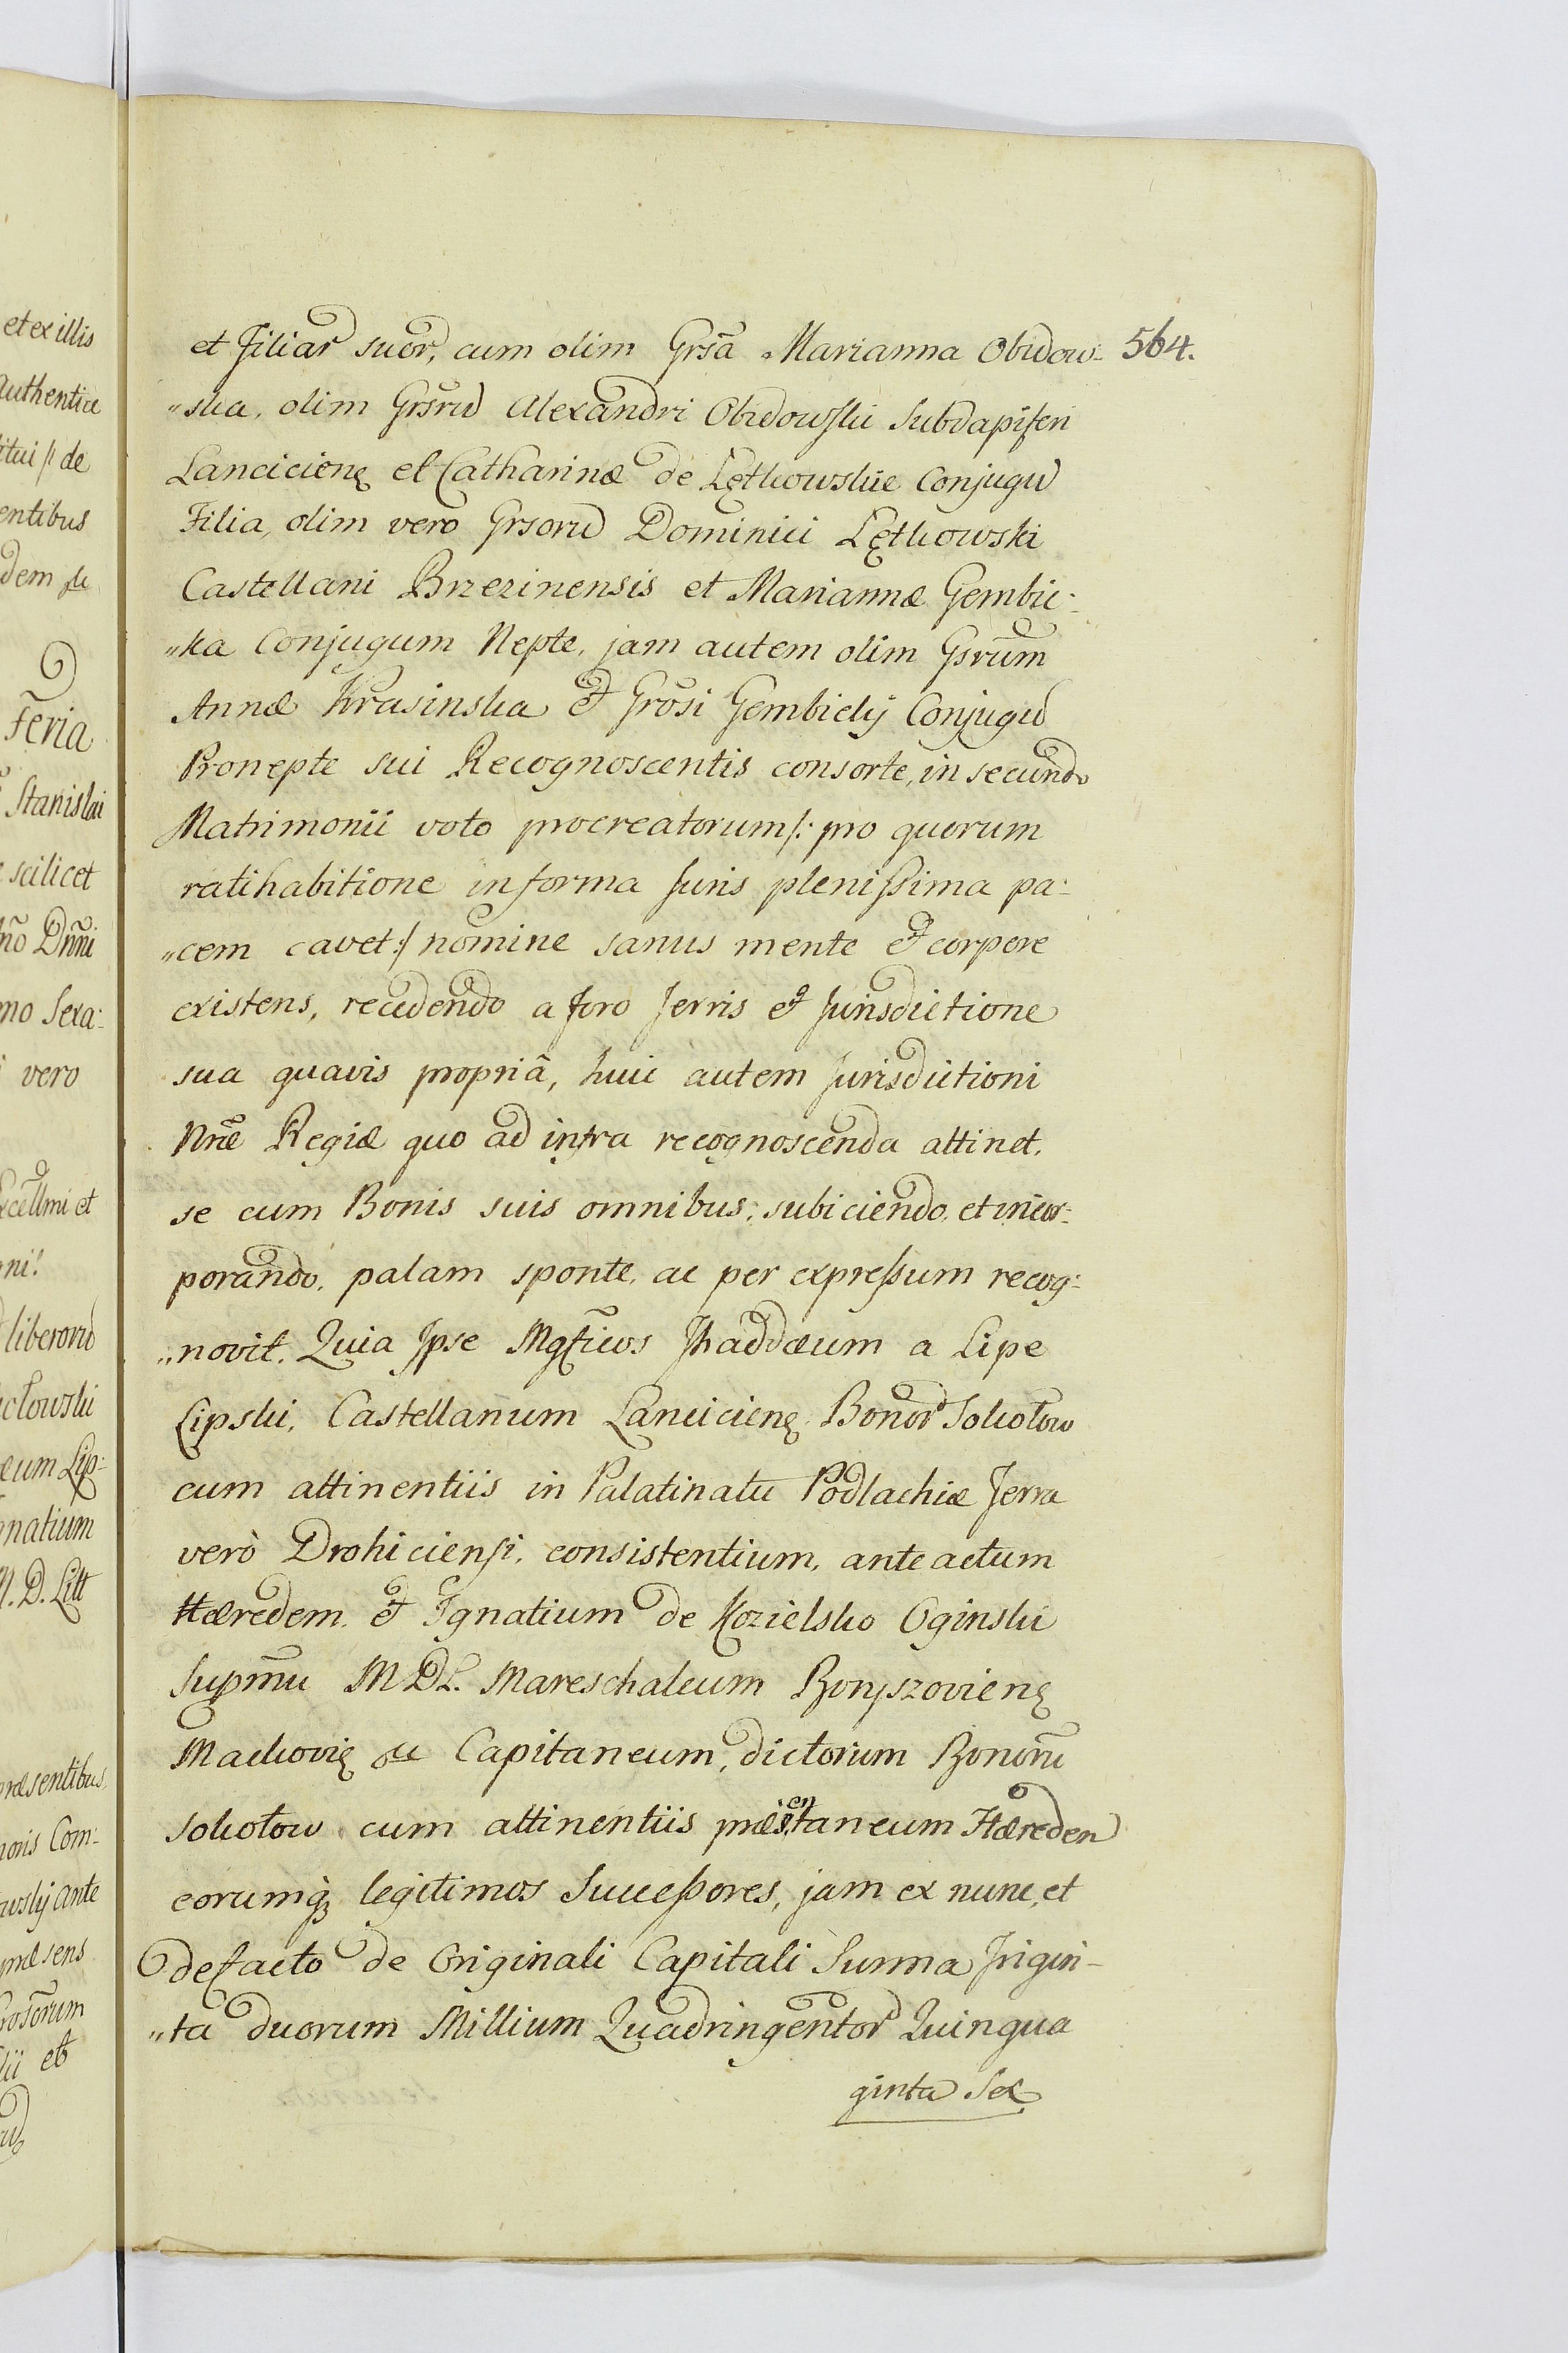 et ex illis
Authentice
entibus
dem
Feria
Stanislai
scilicet
Dnni
mo Sexa:
vero
et
liberorũ
eum Lip:
gnatium
M. D. Litt
præsentibus
noris Com:
ante
præsens
et
564.
et Filiar suor, cum olim Grsã Marianna Obidow:
„ska, olim Grsrũ Alexandri Obidowski Subdapiferi
Lancicienę et Catharinæ de Lętkowskie Conjugũ
Filia, olim vero Grsorũ Dominici Lętkowski
Castellani Brzezinensis et Mariannæ Gembic:
„ka Conjugum Nepte, jam autem olim Gsrũm
Annæ Krasinska et Grõsi Gembicky Conjugũ
Pronepte sui Recognoscentis consorte, in secundo
Matrimonii voto procreatorum/: pro quorum
ratihabitione in forma Juris plenissima pa:
„cem cavet:/ nomine sanus mente et corpore
existens, recedendo a foro Terris et Jurisdictione
sua quavis propriâ, huic autem Jurisdictioni
Nræ Regiæ quo ad infra recognoscenda attinet,
se cum Bonis suis omnibus, subiciendo, et incor:
porando, palam sponte, ac per expressum recog:
„novit. Quia Ipse Mgficos Thaddæum a Lipe
Lipski, Castellanum Lancicienę Bonor Sokołow
cum attinentiis in Palatinatu Podlachiæ Terra
verò Drohiciensi, consistentium, ante actum
Hæredem, et Ignatium de Kozielsko Oginski
Supmũ M D L. Mareschalcum Boryszovienę
Mackovię &c Capitaneum, dictorum Bonorũ
Sokołow cum attinentiis præsentaneum Hæredem
eorumqȝ legitimos Successores, jam ex nunc, et
de facto de Originali Capitali Summa Trigin-
„ta duorum Millium Quadringentor Quinqua
ginta Sex